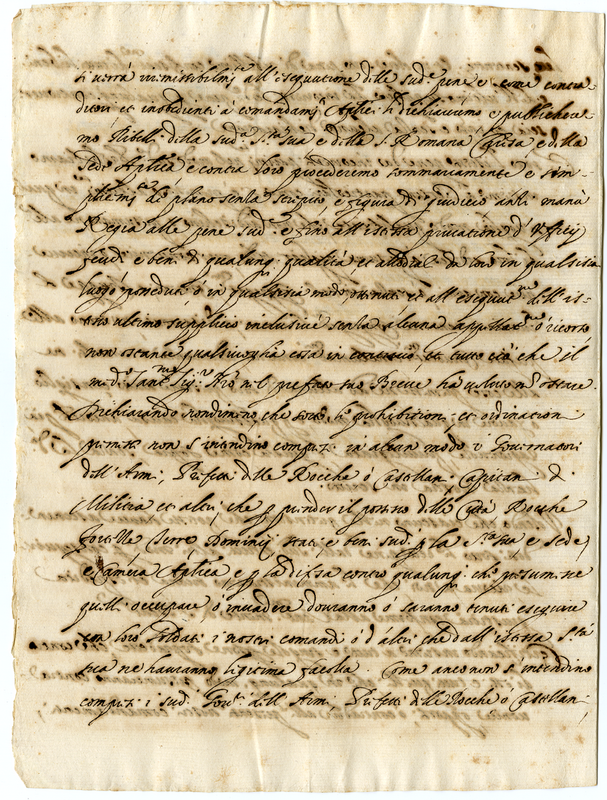 si verrà irremissibilmte all'essequutione delle sude pene e come contra
ditori et inobedienti à comandamti Aplici li dichiariamo e publichere
mo Ribelli della suda Sta sua e della S. Romana Chiesa e della
Sede Aplica e contra loro procederemo sommariamente e sim-
plicemte de plano senza strepito e figura di giudicio anzi manu
Regia alle pene sude e fino all'istessa privatione d'Officij
feudi e beni di qualunq. qualità, et allodiali da loro in qualsisia
luogo posseduti, ò in qualsisia modo tenuti et all'essequutne dell'is-
tesso ultimo supplicio inclusivè senza alcuna appellatne ò ricorso
non ostante qualsivoglia cosa in et tutto ciò che il
mdo Santmo Sigre Nro nel prefato suo Breve hà voluto nõ ostare
Dichiarando nondimeno, che sotto le prohibitioni et ordinationi
premesse non s'intendino compresi in alcun modo i Governatori
dell'Armi, Prefetti delle Rocche ò Castellani, Capitani di
Militia et altri, che p prender il possesso delle Città Rocche
fortezze Terre Dominij stati, e beni sudi p la Sta sua e sede,
e Camera Aplica, e p la difesa contro qualunq. che presumesse
quelli occupare ò invadere dovranno ò saranno tenuti eseguire
con loro soldati i nostri comandi ò d'altri che dall'istessa Sta
sua ne hauranno legitima facoltà. Come anco non s'intendino
compresi i sudi Govri dell'Armi, Prefetti delle Rocche ò Castellani,